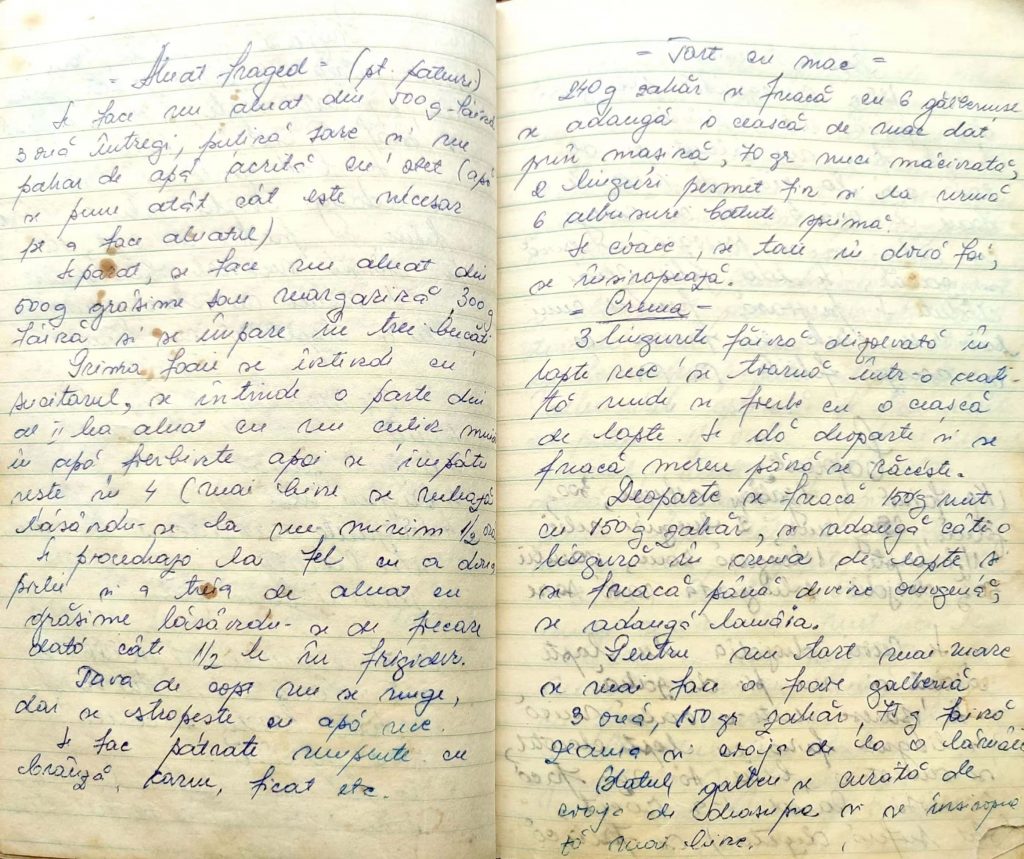 = Aluat fraged = (pt. pateuri)
Se face un aluat din 500g făină
3 ouă întregi, puțină sare și un
pahar de apă acrită cu oțet (apă
se pune atât cât este necesar
pt a face aluatul)
Separat, se face un aluat din
500g grăsime sau margarină 300g
făină și se împare în trei bucăți
Prima foaie se întinde cu
sucitorul, se întinde o parte din
al II lea aluat cu un cuțit muiat
în apă fierbinte apoi se împătu
rește în 4 (mai bine se rulează
lăsându-se la un minim 1/2 oră
Se procedează la fel cu a doua
și a treia de aluat cu
grăsime lăsându-se de fiecare
dată câte 1/2 h în frigider.
Tava de copt nu se unge,
dar se stropește cu apă rece.
Se fac pătrate umplute cu
brânză, carne, ficat etc.
= Tort cu mac =
240g zahăr se freacă cu 6 gălbenușe
se adaugă o ceașcă de mac dat
prin mașină, 70 gr nuci măcinată,
2 linguri pesmet fin și la urmă
6 albușuri bătute spumă.
Se coace, se taie în două foi,
se însiropează.
= Crema =
3 lingurițe făină dizolvată în
lapte rece se toarnă într-o crati
ță unde se fierbe cu o ceașcă
de lapte. Se dă deoparte și se
freacă mereu până se răcește.
Deoparte se freacă 150g unt
cu 150g zahăr, se adaugă câte o
lingură în crema de lapte și
se freacă până devine omogenă,
se adaugă lămâia.
Pentru un tort mai mare
se mai face o foaie galbenă
3 ouă, 150 gr zahăr 75g făină
zeama și coaja de la o lămâie
Blatul galben se curăță de
coaja de deasupra și se însiropea
ză mai bine.